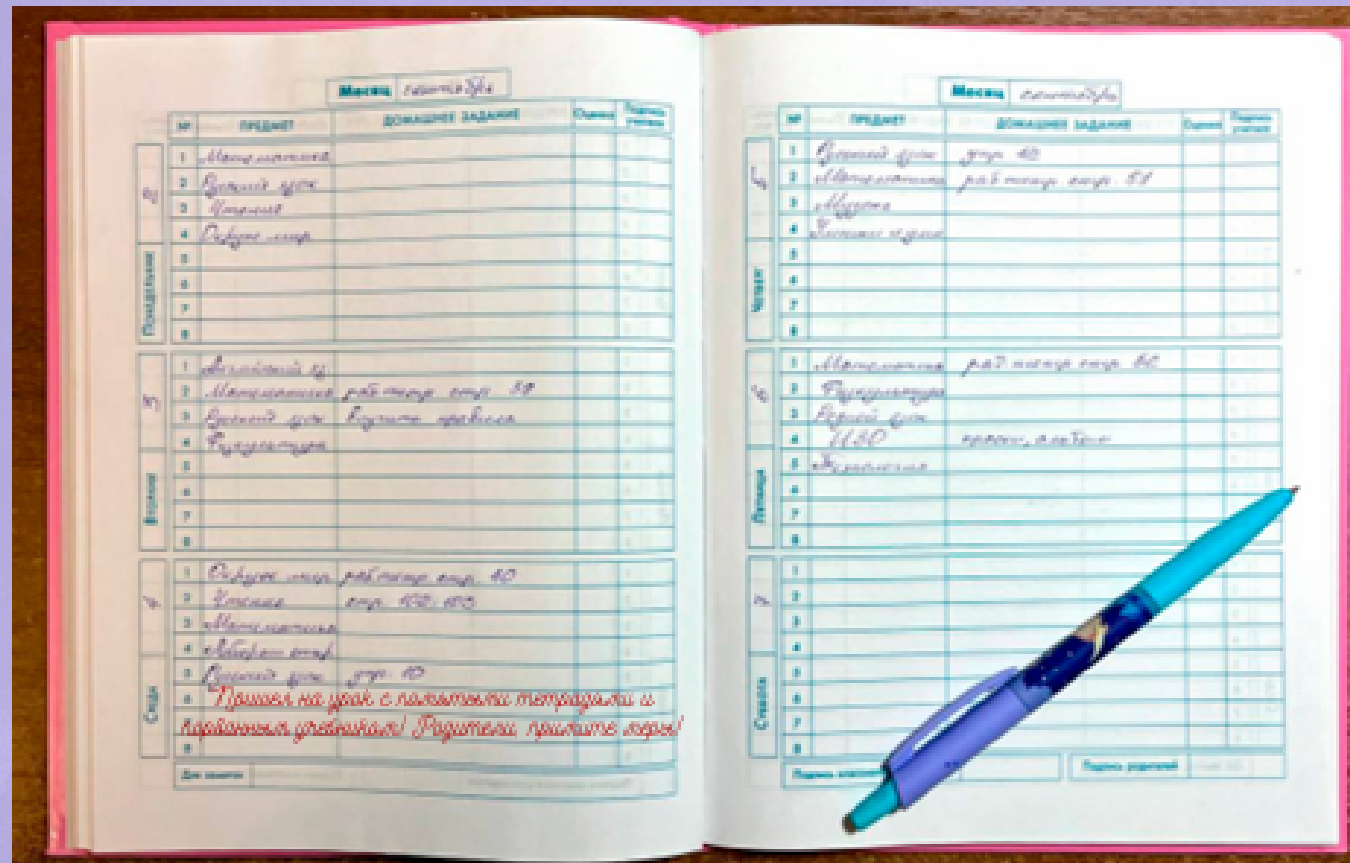 Месяц сентябрь
№ ПРЕДМЕТ ДОМАШНЕЕ ЗАДАНИЕ Оценка Подпись учителя
Понедельник
2
1 Математика
2 Русский язык
3 Чтение
4 Окруж. мир
5
6
7
8
Вторник
3
1 Английский яз.
2 Математика раб. тетр. стр. 58
3 Русский язык Выучить правила
4 Физкультура
5
6
7
8
Среда
4
1 Окруж. мир раб. тетр. стр. 40
2 Чтение стр. 102-103
3 Математика
4
5 Русский язык упр. 10
6 Пришел на урок с помятыми тетрадями и
порванным учебником! Родители, примите меры!
8
Для заметок
Месяц сентябрь
№ ПРЕДМЕТ ДОМАШНЕЕ ЗАДАНИЕ Оценка Подпись учителя
Четверг
5
1 Русский язык упр.
2 Математика раб. тетр. стр. 59
3 Музыка
4
5
6
7
8
Пятница
6
1 Математика раб. тетр. стр. 60
2 Физкультура
3 Родной язык
4 ИЗО краски, альбом
5 Технология
6
7
8
Суббота
7
1
2
3
4
5
6
7
8
Подпись
Подпись родителей